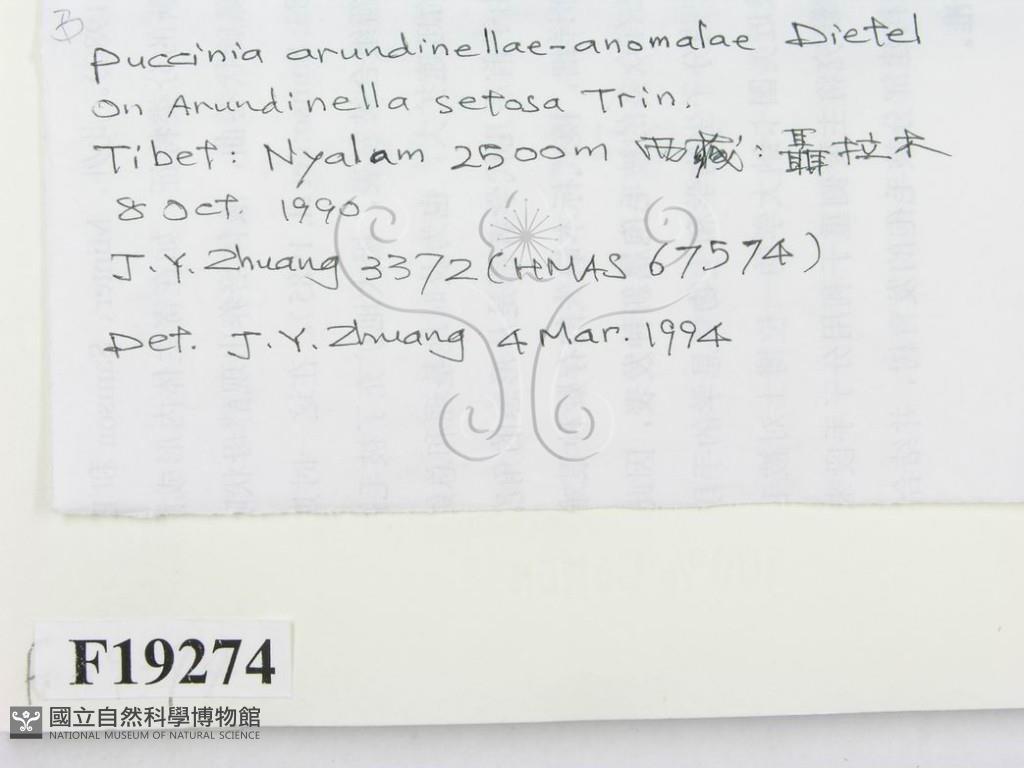 B
Puccinia arundinellae-anomalae Dietel
on Arundinella setosa Trin.
Tibet: Nyalam 2500m 西藏: 聶拉木
8 Oct. 1990
J.Y. Zhuang 3372 (HMAS 67574)
Det. J.Y. Zhuang 4 Mar. 1994
F19274
國立自然科學博物館
NATIONAL MUSEUM OF NATURAL SCIENCE